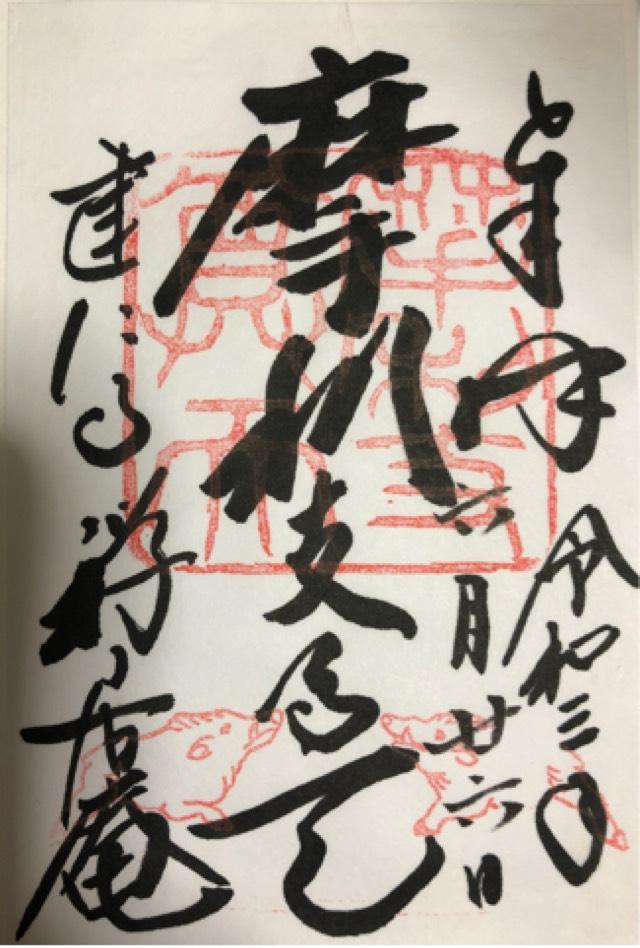 奉拝
令和三年
六月廿六日
摩利支尊天
建仁寺
禅居庵